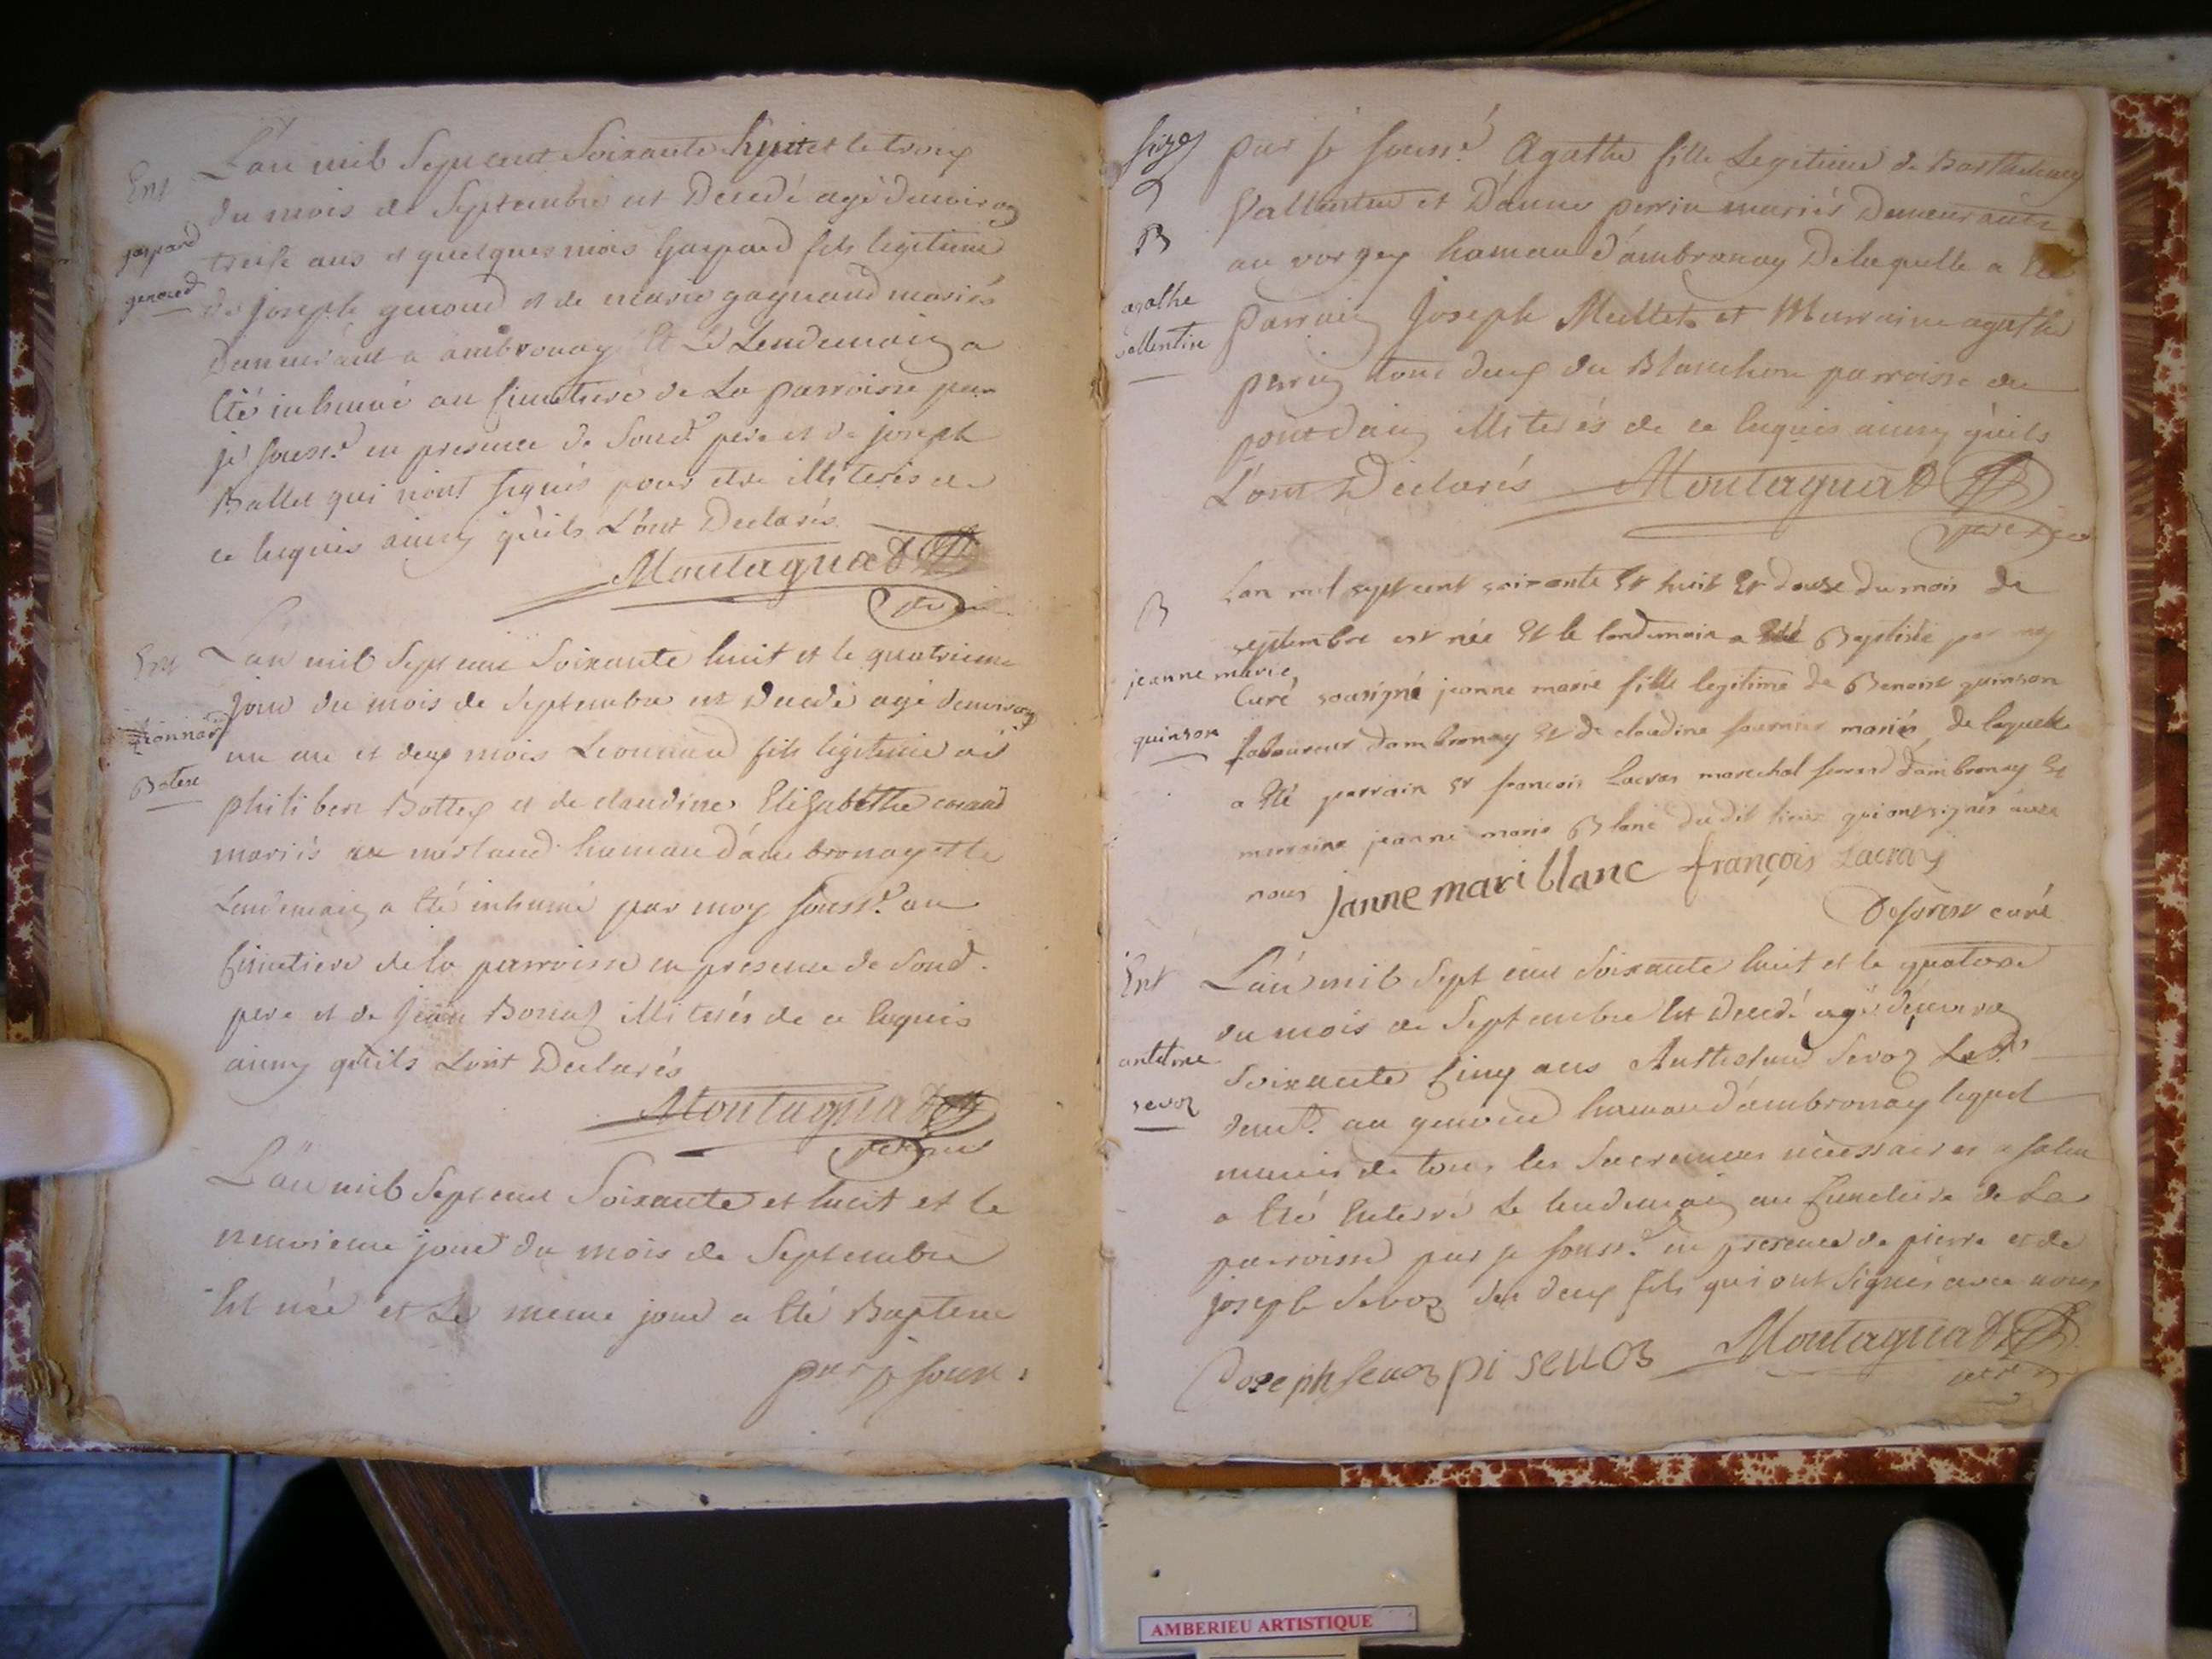 L'an mil Sept cent Soixante huit et le trois
Ent
du mois de Septembre est Decedé agé denviron
gaspard
genoud
treise ans et quelques mois Gaspard fils legitime
de joseph genoud et de marie gagnaud mariés
Demeurant a ambronay Et Le Lendemain a
Eté inhumé au Cimetiere de La parroisse par
je souss.é en presence de Sond. pere et de joseph
Ballet qui n'ont signés pour etre illiterés de
ce Enquis ainsy qu'ils L'ont Declarés
Montagnat
L'an mil Sept cent Soixante huit et le quatrieme
Ent
jour du mois de Septembre est Decedé agé denviron
Lionnard
Botex
un an et deux mois Leonnard fils legitime de
philibert Bottex et de claudine Elisabethe
mariés au merland hameau d'ambronay et le
Lendemain a Eté inhumé par moy souss.é au
Cimetiere de la parroisse en presence de Sond.
pere et de jean Bonnat illiterés de ce Enquis
ainsy qu'ils Lont Declarés
Montagnat
L'an mil Sept cent Soixante et huit et le
neuvieme jour du mois de Septembre
Est née et Le meme jour a Eté Baptisée
par je souss.
par je souss.é Agathe fille Legitime de Barthelemy
B
agathe
vallentin
Vallentin et D'anne perrin mariés Demeurants
au vorgey hameau d'ambronay De laquelle a Eté
Parrain Joseph Mellet et Marraine agathe
perrin tous deux du Blanchon parroisse de
pontdain illiterés de ce Enquis ainsy qu'ils
L'ont Declarés Montagnat
Lan mil sept cent soixante Et huit Et douze du mois de
B
septembre est née Et le landemain a Eté Baptisée par moy
jeanne marie
quinson
Curé sousigné jeanne marie fille legitime de Benoist quinson
laboureur dambronay Et de claudine fournier mariés, de laquelle
a Eté parrain sr francois Lacras marechal ferrand dambronay Et
marraine jeanne marie Blanc dudit lieux qui ont signés avec
nous janne mari blanc françois Lacras
Deforest curé
L'an mil Sept cent Soixante huit et le quatorze
Ent
du mois de Septembre Est Decedé agé d'environ
antelme
sevoz
Soixante Cinq ans Anthelme Sevoz Lab.r
dem.t au genoud hameau d'ambronay lequel
munis de tous les Sacremens necessaires a salut
a Eté Enterré le lendemain au Cimetiere de La
parroisse par je souss.é en presence de pierre et de
joseph Sevoz Ses deux fils qui ont Signés avec nous
Joseph sevoz pi sevoz Montagnat
AMBERIEU ARTISTIQUE